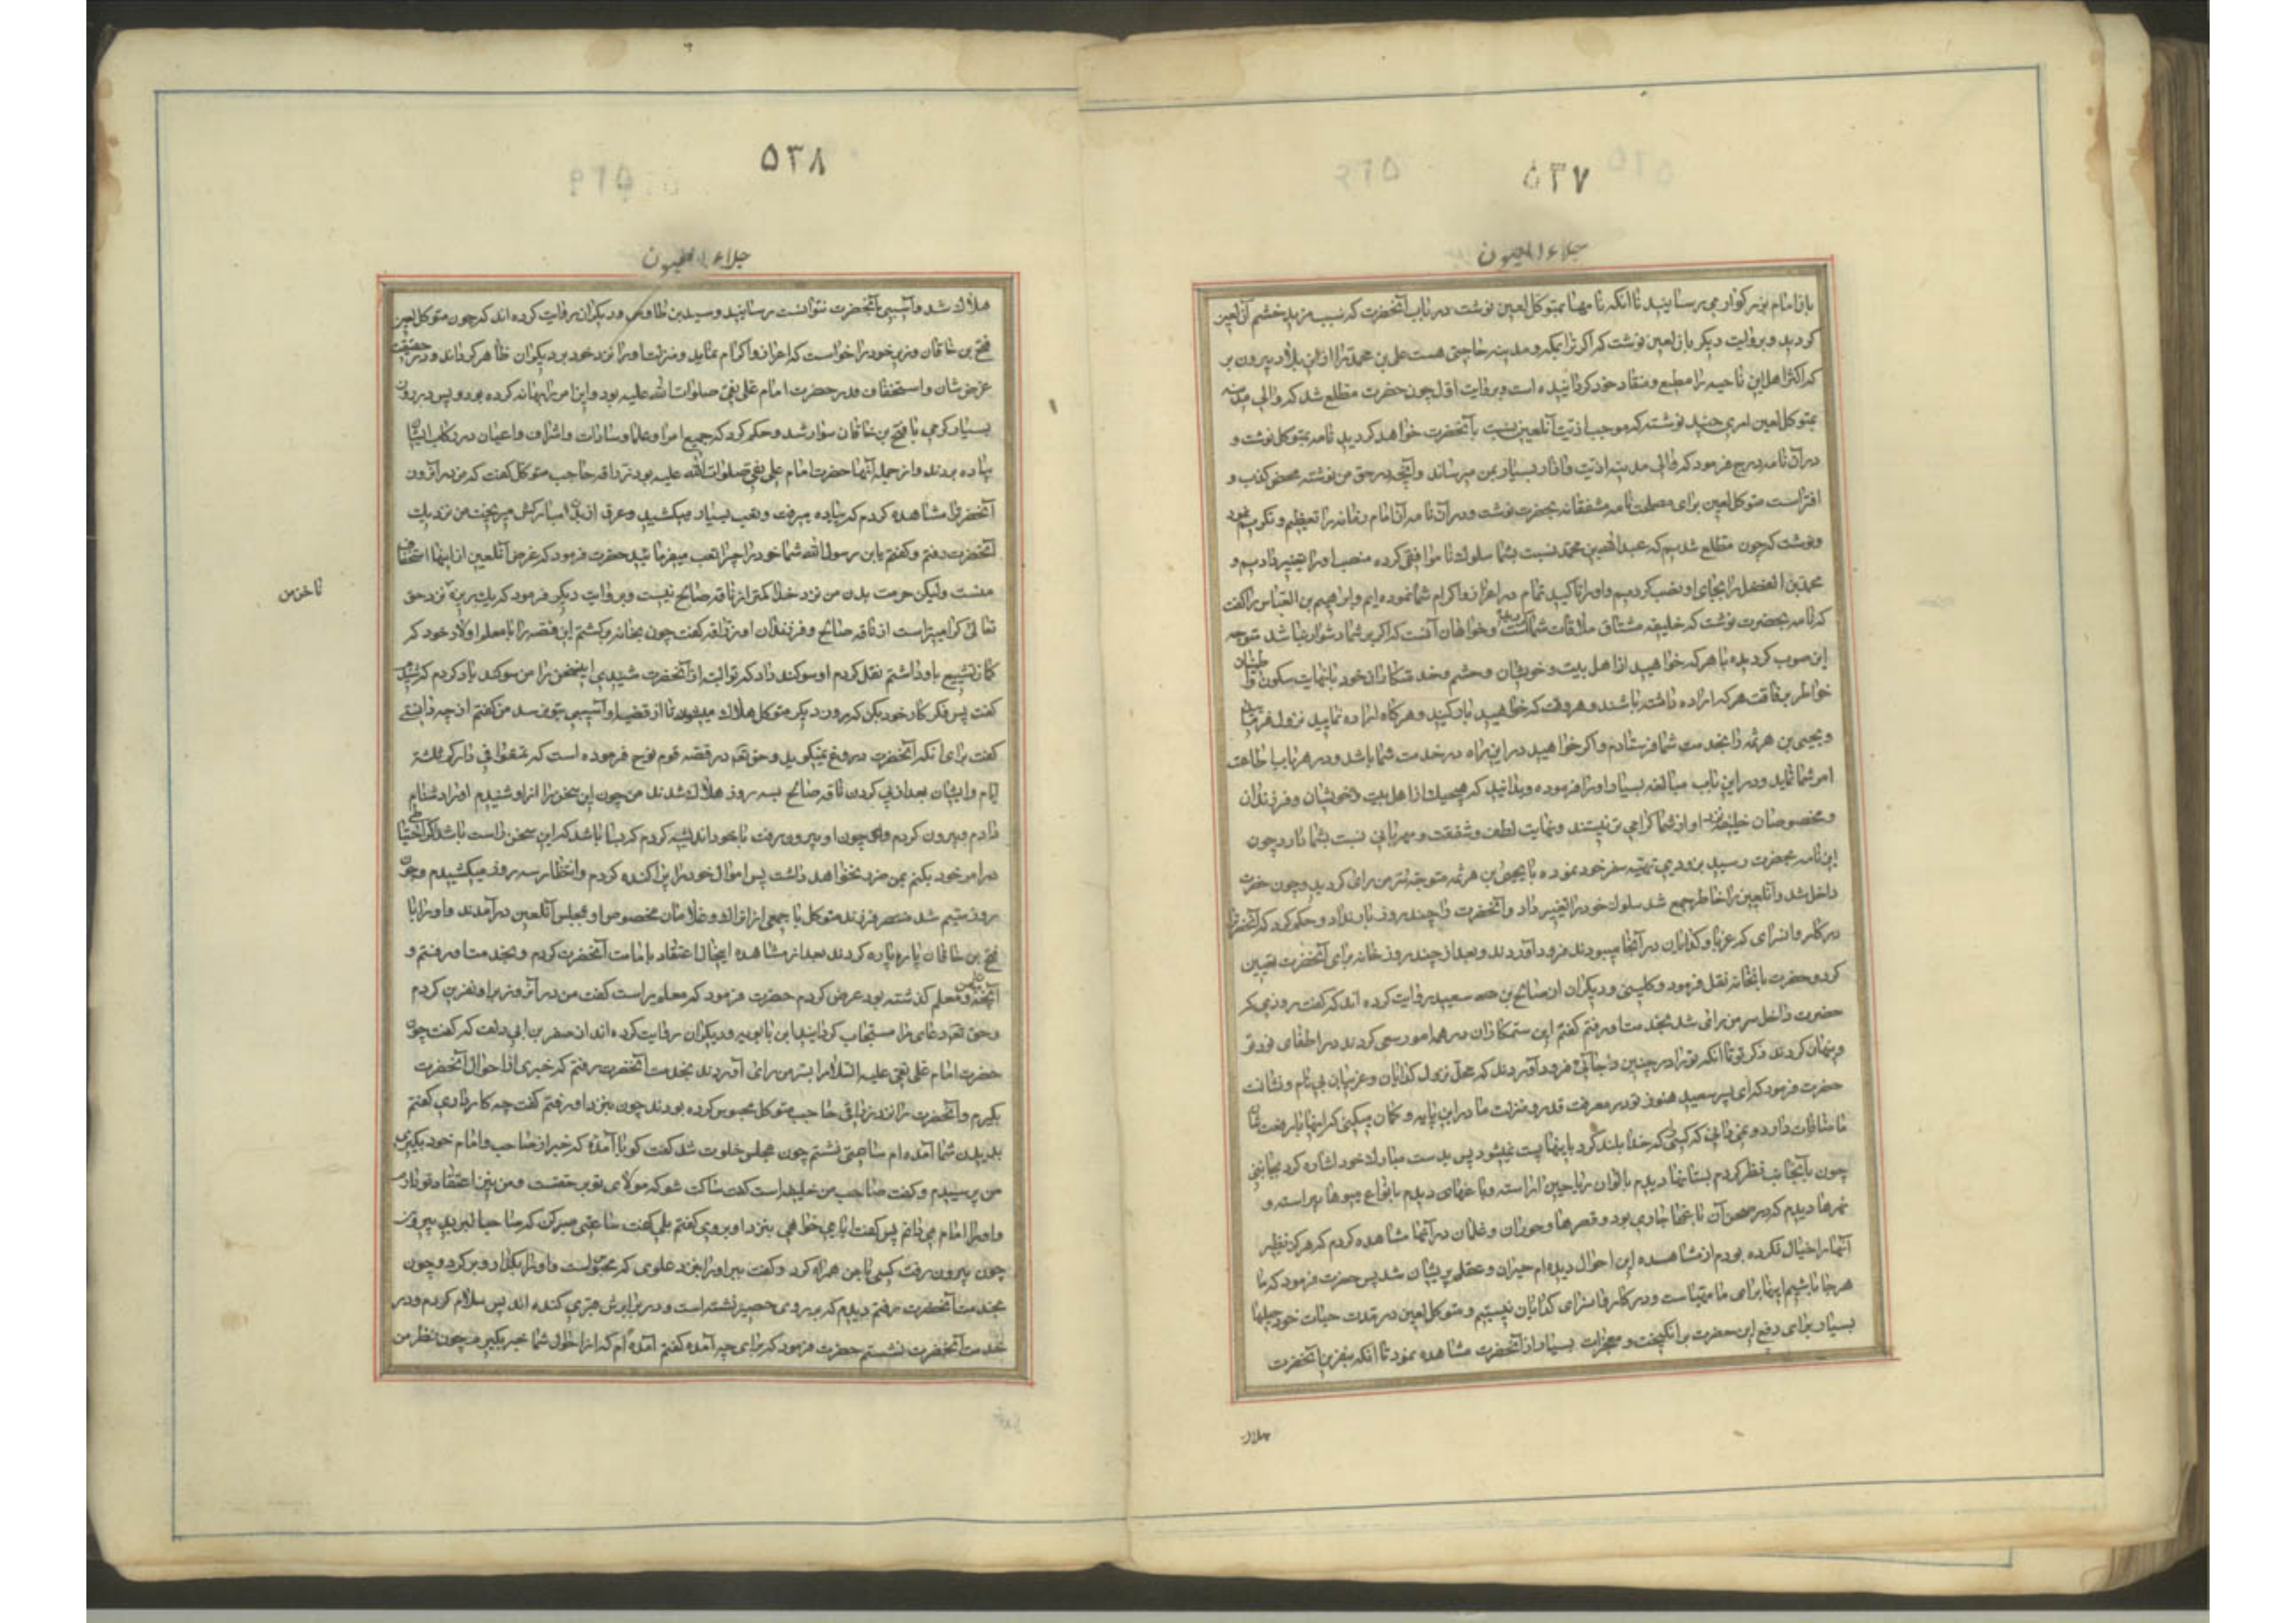 ۵۳۷
جلاء العیون
بان امام بزرکوار می رسانید تا انکه نامها بمتوکل لعین نوشت در باب آنحضرت که سبب مزید خشم آن لعین
کردید و بروایت دیکر بان لعین نوشت که اکر ترا بمکه و مدینه حاجتی هست علی بن محمد را از این بلاد بیرون بر
که اکثر اهل این ناحیه را مطیع و منقاد خود کردانیده است و بروایت اول چون حضرت مطلع شد که والی مدینه
بمتوکل لعین امری چند نوشته که موجب اذیت آنلعین نسبت بآنحضرت خواهد کردید نامه بمتوکل نوشت و
در آن نامه درج فرمود که والی مدینه اذیت و ازار بسیار بمن میرساند و آنچه در حق من نوشته محض کذب و
افتراست متوکل لعین برای مصلحت نامه مشفقانه بحضرت نوشت و در آن نامه آن امام زمانه را تعظیم و تکریم نمود
و نوشت که چون مطلع شدیم که عبدالله بن محمد نسبت بشما سلوک ناموافقی کرده منصب او را تغییر دادیم و
محمد بن الفضل را بجای او نصب کردیم و او را تاکید تمام در اعزاز و اکرام شما نموده ایم و ابراهیم بن العباس را کفت
که نامه بحضرت نوشت که خلیفه مشتاق ملاقات شما است و خواهان آنست که اکر بر شما دشوار نباشد متوجه
این صوب کردیده با هر که خواهید از اهل بیت و خویشان و حشم و خدمتکاران خود با نهایت سکون و اطمینان
خاطر برفاقت هر که اراده داشته باشند و هر وقت که خواهید بار کنید و هرکاه اراده نمایید نزول فرمائید
و یحیی بن هرثمه را بخدمت شما فرستادم و اکر خواهید در این راه در خدمت شما باشد و در هر باب اطاعت
امر شما نماید و در این باب مبالغه بسیار او را فرموده و بدانید که هیچیک از اهل بیت و خویشان و فرزندان
و مخصوصان خلیفه نزد او از شما کرامی تر نیستند و نهایت لطف و شفقت و مهربانی نسبت بشما دارد چون
این نامه بحضرت رسید بزودی تهیه سفر خود نموده با یحیی بن هرثمه متوجه سر من رای کردید و چون حضرت
داخل شد و آنلعین را خاطر جمع شد سلوک خود را تغییر داد و آنحضرت را چند روز بار نداد و حکم کرد که آنحضرترا
در کاروانسرای که غربا و کدایان در آنجا میبودند فرود آوردند و بعد از چند روز خانه برای آنحضرت تعیین
کرد و حضرت بآنخانه نقل فرمود و کلینی و دیکران از صالح بن سعید روایت کرده اند که کفت روزی که
حضرت داخل سر من رای شد بخدمت او رفتم کفتم این ستمکاران در همه امور سعی کردند در اطفای نور تو
و پنهان کردند ذکر تو تا انکه تو را در چنین جائی فرود آوردند که محل نزول کدایان و غریبان بی نام و نشانست
حضرت فرمود که ای پسر سعید هنوز تو در معرفت قدر و منزلت ما در این پایه و کمان میکنی که اینها با رفعت شان
ما منافات دارد و نمیدانی که کسی که خدا بلند کرد باینها پست نمیشود پس بدست مبارک خود اشاره کرد بجانبی
چون بآنجانب نظر کردم بستانها دیدم بالوان ریاحین اراسته و باغهای دیدم بانواع میوها پیراسته و
نهرها دیدم که در صحن آن باغها جاری بود و قصرها و حوران و غلمان در آنها مشاهده کردم که هرکز نظیر
آنها را خیال نکرده بودم از مشاهده این احوال دیده ام حیران و عقلم پریشان شد پس حضرت فرمود که ما
هر جا باشیم اینها برای ما مهیا است و در کاروانسرای کدایان نیستیم و متوکل لعین در مدت حیات خود حیلها
بسیار برای دفع این حضرت برانکیخت و معجزات بسیار از آنحضرت مشاهده نمود تا انکه بنفرین آنحضرت
هلاک
۵۳۸
جلاء العیون
هلاک شد و آسیبی بآنحضرت نتوانست رسانید و سید بن طاوس و دیکران روایت کرده اند که چون متوکل لعین
فتح بن خاقان وزیر خود را خواست که اعزاز و اکرام نماید و منزلت او را نزد خود بر دیکران ظاهر کرداند و در حقیقت
غرض شان و استخفاف قدر حضرت امام علی نقی صلوات الله علیه بود و این امر را بهانه کرده بود پس در روز
بسیار کرمی با فتح بن خاقان سوار شد و حکم کرد که جمیع امرا و علما و سادات و اشراف و اعیان در رکاب ایشان
پیاده بروند و از جمله آنها حضرت امام علی نقی صلوات الله علیه بود زراقه حاجب متوکل کفت که من در آنروز
آنحضرترا مشاهده کردم که پیاده میرفت و تعب بسیار میکشید و عرق از بدن مبارکش میریخت من نزدیک
آنحضرت رفتم و کفتم یابن رسول الله شما خود را چرا تعب میفرمائید حضرت فرمود که غرض آنلعین از اینها استخفاف
منست ولیکن حرمت بدن من نزد خدا کمتر از ناقه صالح نیست و بروایت دیکر فرمود که یک ریزه نزد حق
ناخن من
تعالی کرامیتر است از ناقه صالح و فرزندان او زراقه کفت چون بخانه برکشتم این قصه را با معلم اولاد خود که
کمان تشیع باو داشتم نقل کردم او سوکند داد که تو البته از آنحضرت شنیدی این سخن را من سوکند یاد کردم که شنیدم
کفت پس فکر کار خود بکن که سه روز دیکر متوکل هلاک میشود تا از قضیه او آسیبی بتو نرسد من کفتم از چه دانستی
کفت برای انکه آنحضرت دروغ نمیکوید و حق تعالی در قصه قوم فرموده است که تمتعوا فی دارکم ثلثة
ایام و ایشان بعد از پی کردن ناقه صالح بسه روز هلاک شدند من چون این سخن را از او شنیدم او را دشنام
دادم و بیرون کردم و چون او بیرون رفت با خود اندیشه کردم که بسا باشد که این سخن راست باشد اکر احتیاطی
در امور خود بکنم بمن ضرر نخواهد داشت پس اموال خود را پراکنده کردم و انتظار سه روز میکشیدم و چون
روز سیم شد منتصر فرزند متوکل با جمعی از اتراک و غلامان مخصوص او بمجلس آنلعین در آمدند و او را با
فتح بن خاقان پاره پاره کردند بعد از مشاهده اینحال اعتقاد بامامت آنحضرت کردم و بخدمت او رفتم و
آنچه میان من و معلم کذشته بود عرض کردم حضرت فرمود که معلم راست کفت من در آنروز بر او نفرین کردم
و حق تعالی دعای مرا مستجاب کردانید ابن بابویه و دیکران روایت کرده اند از صقر بن ابی دلف که کفت چون
حضرت امام علی نقی علیه السلام را بسر من رای آوردند بخدمت آنحضرت رفتم که خبری از احوال آنحضرت
بکیرم و آنحضرت را نزد زراقی حاجب متوکل محبوس کرده بودند چون بنزد او رفتم کفت بچه کار آمدی کفتم
بدیدن شما آمده ام ساعتی نشستم چون مجلس خلوت شد کفت کویا آمدهٔ که خبر از صاحب و امام خود بکیری
من ترسیدم و کفتم صاحب من خلیفه است کفت ساکت شو که مولای تو بر حقست و من نیز اعتقاد تو دارم
و او را امام می دانم پس کفت ایا می خواهی بنزد او بروی کفتم بلی کفت ساعتی صبر کن که صاحب البرید بیرون رود
چون بیرون رفت کسی با من همراه کرد و کفت ببر او را بنزد علوی که محبوس است و او را بکذار و برکرد و چون
بخدمت آنحضرت رفتم دیدم که بر روی حصیر نشسته است و در برابرش قبری کنده اند پس سلام کردم و در
خدمت آنحضرت نشستم حضرت فرمود که برای چه آمده کفتم آمده ام که از احوال شما خبر بکیرم چون نظر من